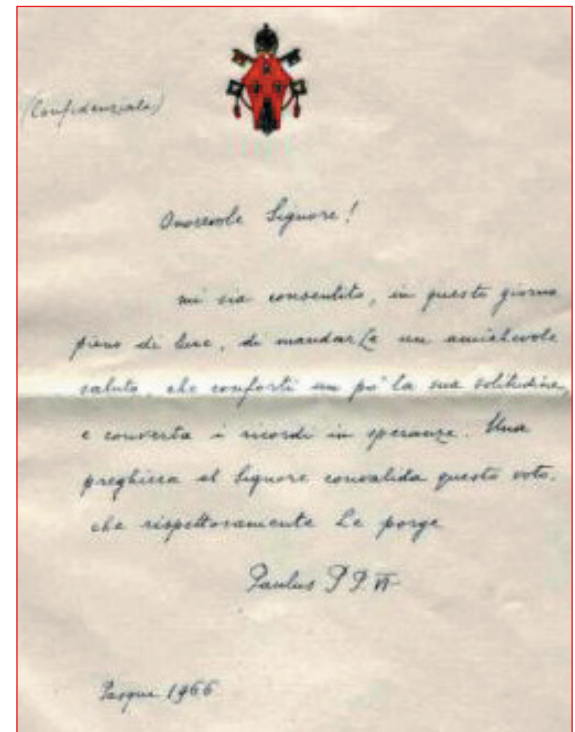 (Confidenziale)
Onorevole Signore!
mi sia consentito, in questo giorno
pieno di luce, di mandarLe un amichevole
saluto, che conforti un po' la sua solitudine,
e converta i ricordi in speranze. Una
preghiera al Signore convalida questo voto,
che rispettosamente Le porge
Paulus PP. VI
Pasqua 1966